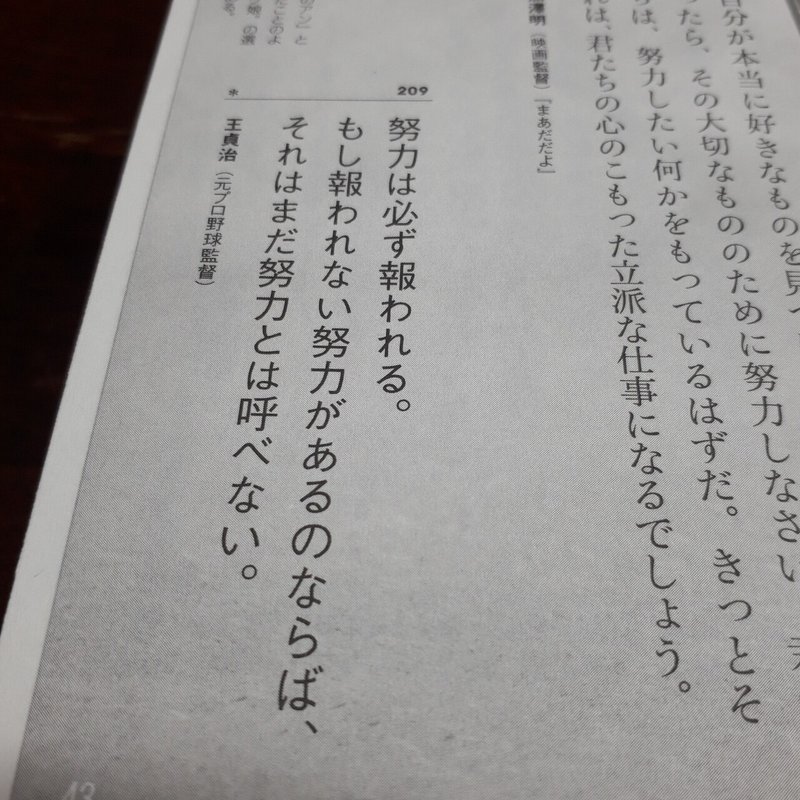 自分が本当に好きなものを見つ
ったら、その大切なもののために努力しなさい
は、努力したい何かをもっているはずだ。きっとそ
れは、君たちの心のこもった立派な仕事になるでしょう。
澤明（映画監督）『まあだだよ』
209
努力は必ず報われる。
もし報われない努力があるのならば、
それはまだ努力とは呼べない。
＊
王貞治（元プロ野球監督）
のアン』と
だことのよ
娘。の選
る。
43